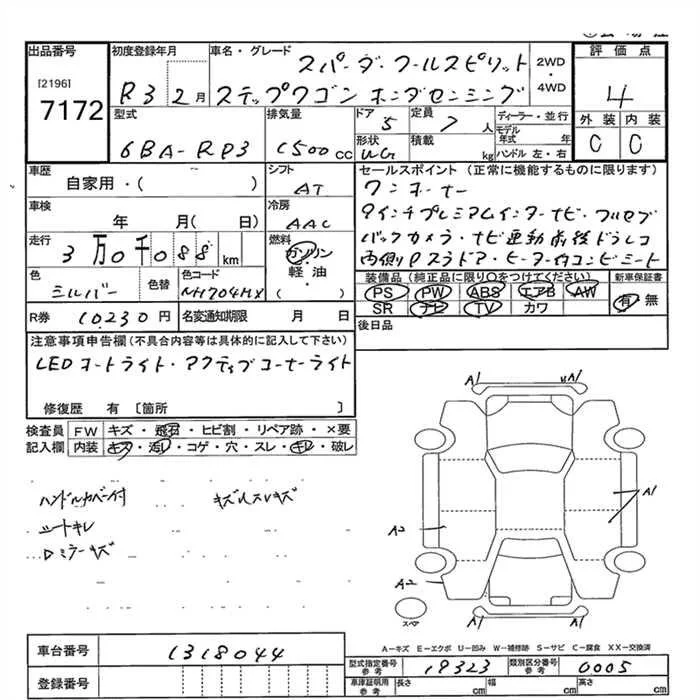 出品番号 初度登録年月 車名・グレード スパーダ・クールスピリット 2WD・4WD 評価点
[2196]
7172 R3 2月 ステップワゴン ホンダセンシング 4
型式 排気量 ドア 5 定員 7 人 ディーラー・並行 外装 内装
6BA-RP3 1500 cc 形状 WG 積載 kg モデル年式 年 ハンドル 左・右 C C
車歴 自家用・( ) シフト AT セールスポイント (正常に機能するものに限ります)
ワンオーナー
車検 年 月( 日) 冷房 AAC
9インチプレミアムインターナビ・フルセグ
走行 3万0千088 km 燃料 ガソリン・軽油・( )
バックカメラ・ナビ連動前後ドラレコ
両側Pスラドア・ヒーター付コンビシート
色 シルバー 色替 色コード NH704MX
装備品 (純正品に限り○をつけてください) 新車保証書
PS PW ABS エアB AW 有・無
SR ナビ TV カワ
R券 10230円 名変通知期限 月 日
後日品
注意事項申告欄 (不具合内容等は具体的に記入して下さい)
LEDヘッドライト・アクティブコーナーライト
修復歴 有 [箇所 ]
検査員記入欄 FW キズ・飛石・ヒビ割・リペア跡・×要
内装 キズ・汚レ・コゲ・穴・スレ・キレ・破レ
ハンドルカバー付
シートキレ
Dミラーキズ
A1 A1
A1
A2
A2
スペア
A-キズ E-エクボ U-凹み W-補修跡 S-サビ C-腐食 XX-交換済
車台番号 1318044
型式指定番号 参考 19323 類別区分番号 参考 0005
登録番号
車庫証明用 参考 長さ cm 幅 cm 高さ cm